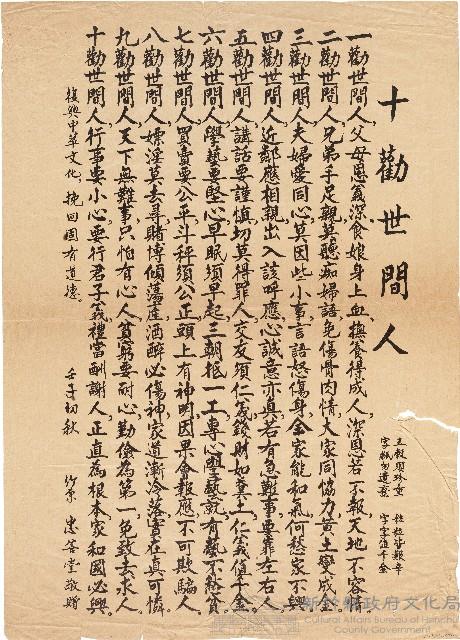 十勸世間人
五穀須珍重 粒粒皆艱辛
字紙勿遺棄 字字值千金
一勸世間人父母恩義深食娘身上血撫養得成人深恩若不報天地不容情
二勸世間人兄弟手足親莫聽痴婦語免傷骨肉情大家同協力黃土變成金
三勸世間人夫婦愛同心莫因些小事言語怒傷身全家能和氣何愁家不興
四勸世間人近鄰應相親出入該呼應心誠意亦真若有急難事要靠左右人
五勸世間人講話要謹慎切莫得罪人交友須仁義錢財如糞土仁義值千金
六勸世間人學藝要堅心早眠須早起三朝抵一工專心學藝就有藝不煞貧
七勸世間人買賣要公平斗秤須公正頭上有神明因果會報應不可欺騙人
八勸世間人嫖淫莫去尋賭博傾蕩產酒醉必傷神家道漸冷落實在真可憐
九勸世間人天下無難事只怕有心人貧窮要耐心勤儉為第一免致去求人
十勸世間人行事要小心要行君子義禮當酬謝人正直為根本家和國必興
復興中華文化，挽回固有道德。
壬子初秋 竹東 善堂敬贈
新竹縣政府文化局
Cultural Affairs Bureau of Hsinchu County Government